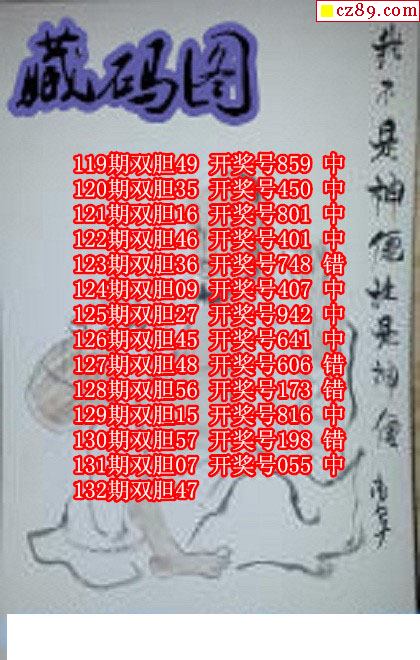 cz89.com
藏码图
119期双胆49 开奖号859 中
120期双胆35 开奖号450 中
121期双胆16 开奖号801 中
122期双胆46 开奖号401 中
123期双胆36 开奖号748 错
124期双胆09 开奖号407 中
125期双胆27 开奖号942 中
126期双胆45 开奖号641 中
127期双胆48 开奖号606 错
128期双胆56 开奖号173 错
129期双胆15 开奖号816 中
130期双胆57 开奖号198 错
131期双胆07 开奖号055 中
132期双胆47
我不是神仙 是神仙